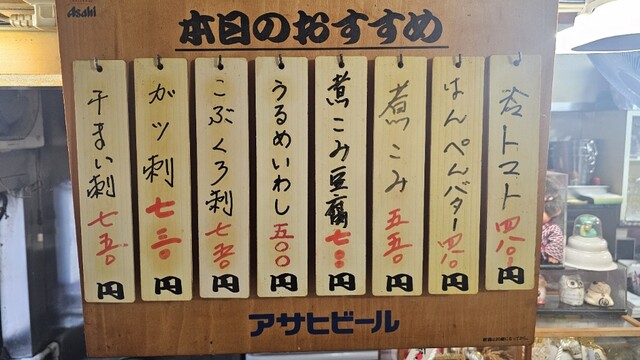 Asahi
本日のおすすめ
冷トマト 四八〇円
はんぺんバター 四八〇円
煮こみ 五五〇円
煮こみ豆腐 七〇〇円
うるめいわし 五〇〇円
こぶくろ刺 七五〇円
ガツ刺 七三〇円
千まい刺 七五〇円
アサヒビール